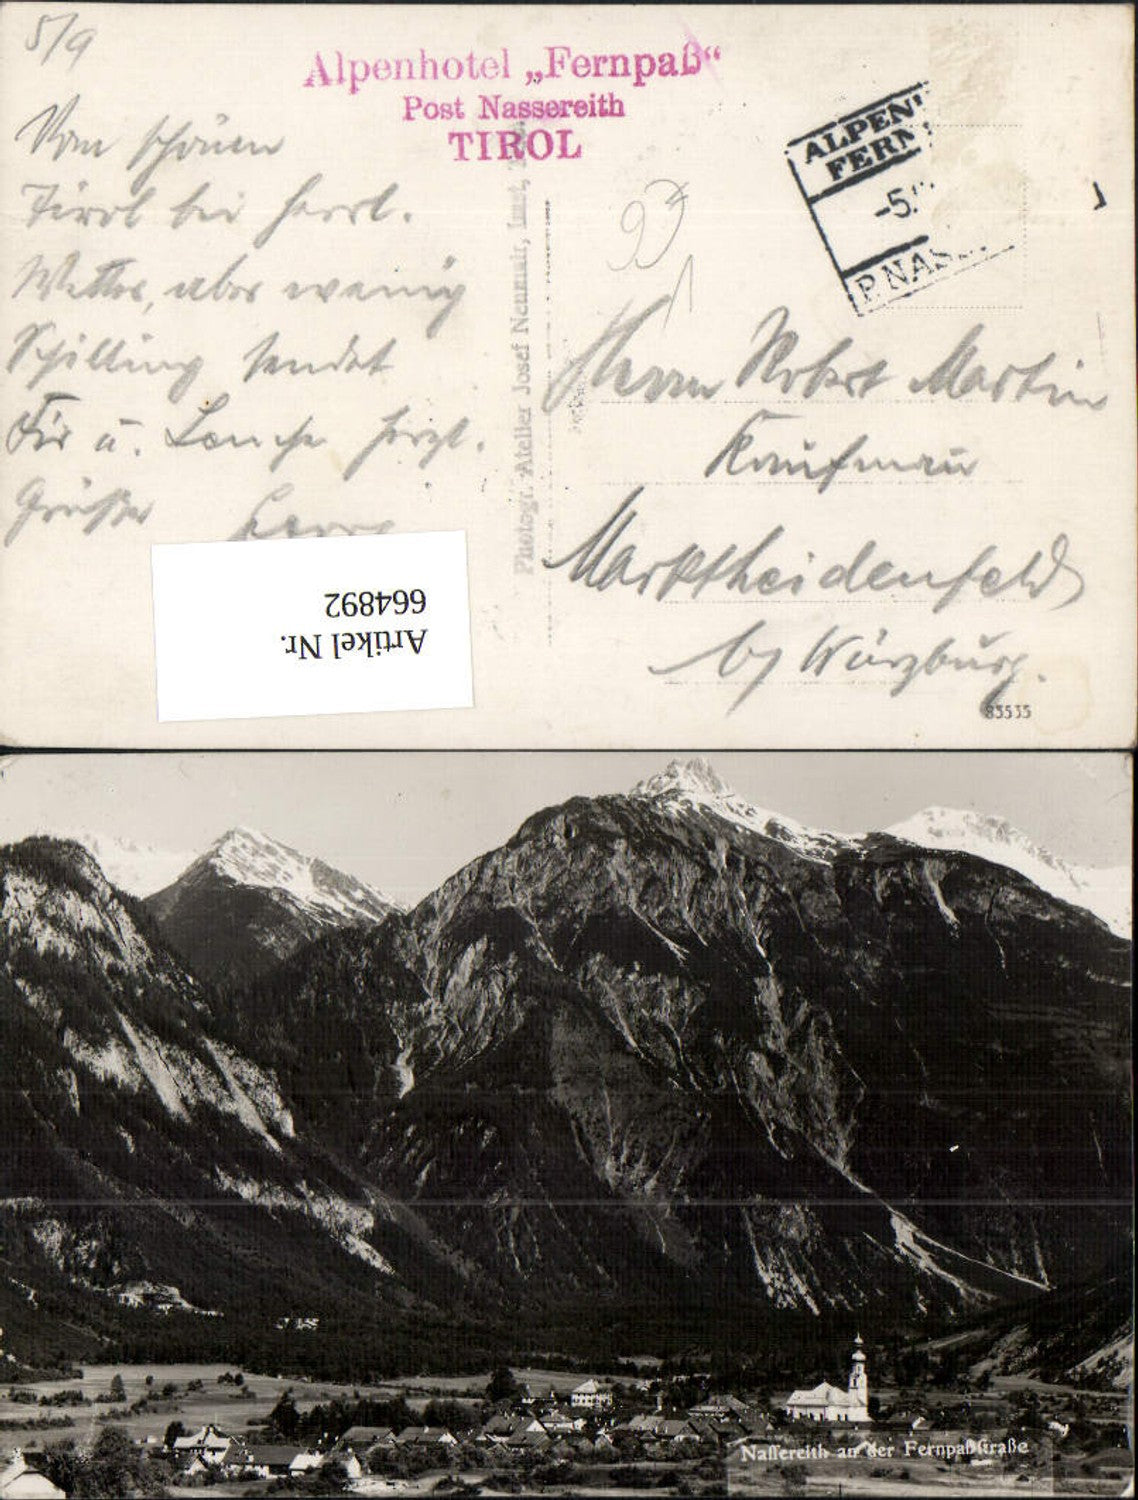 5/9
Alpenhotel „Fernpaß“
Post Nassereith
TIROL
Vom schönen
Tirol bei herrl.
Wetter, aber wenig
Schilling sendet
Dir u. herzl.
Grüße
ALPEN
FERN
-5.
P. NAS
Herrn Robert Martin
Kaufmann
Marktheidenfeld
by Würzburg.
Photogr. Atelier Josef Neumair, Imst,
83535
Artikel Nr.
664892
Nassereith an der Fernpaßstraße